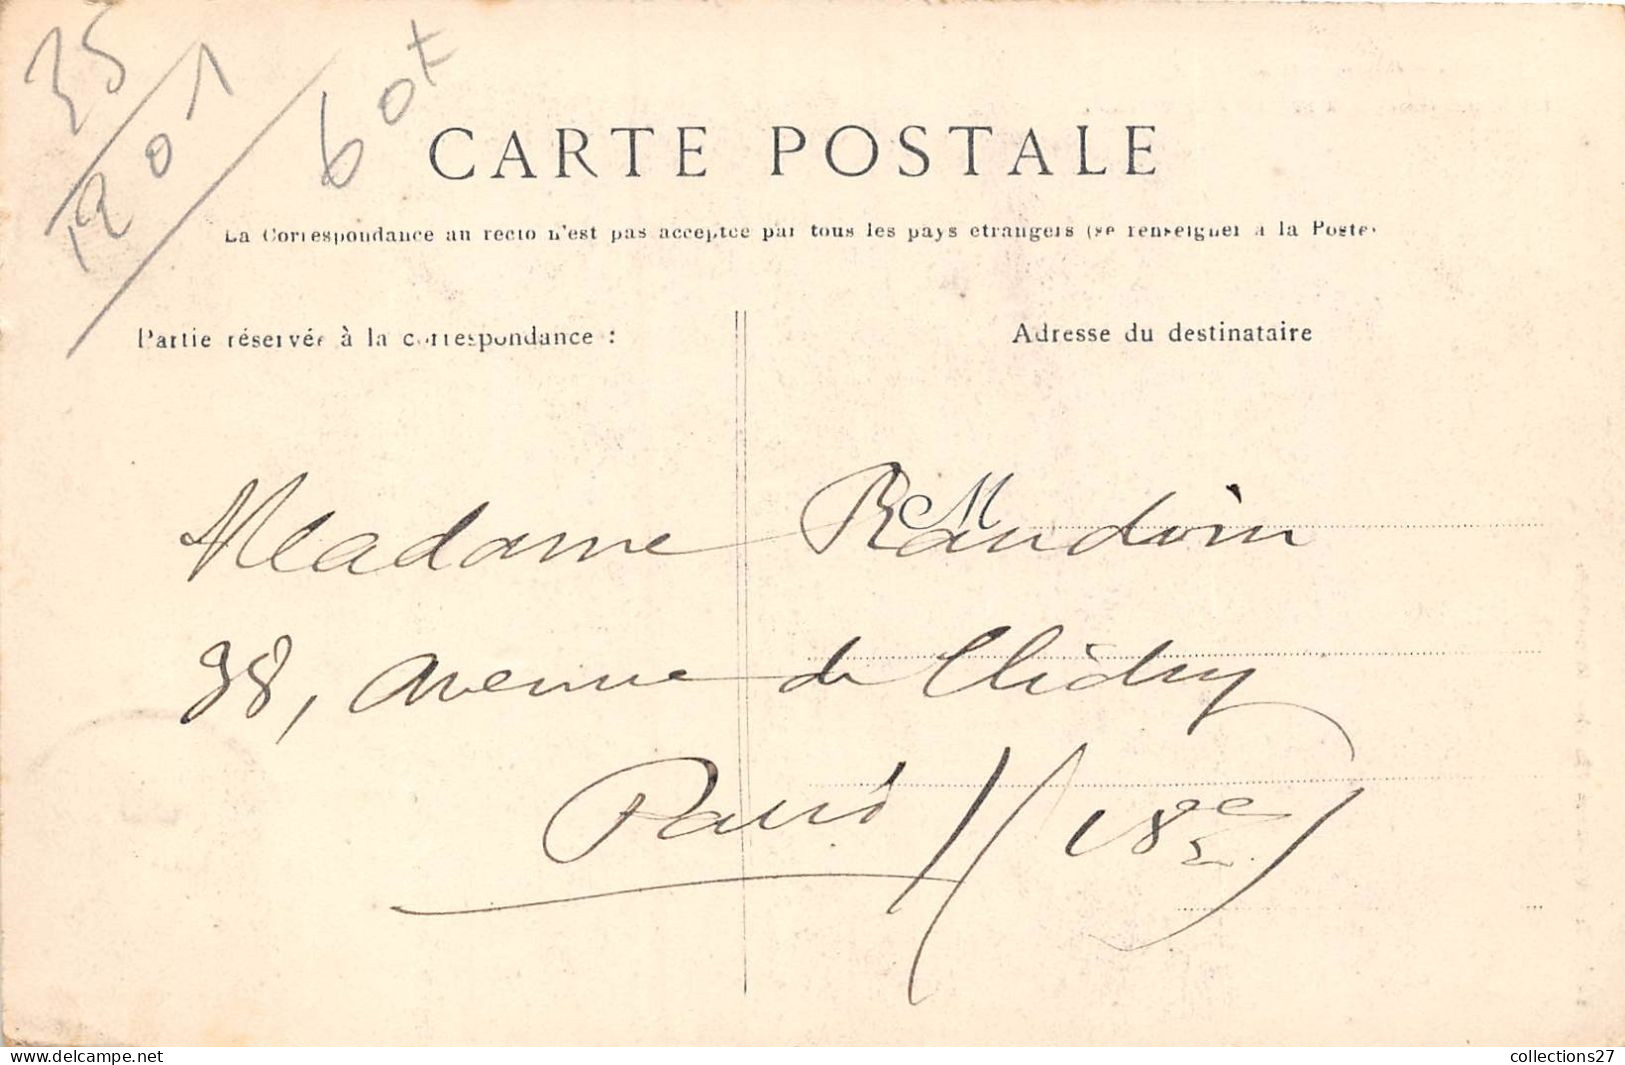 35
1201
60t
CARTE POSTALE
La Correspondance au recto n'est pas acceptée par tous les pays étrangers (se renseigner à la Poste)
Partie réservée à la correspondance :
Adresse du destinataire
M
Madame Baudoin
98, avenue de Clichy
Paris // 18e
www.delcampe.net
collections27